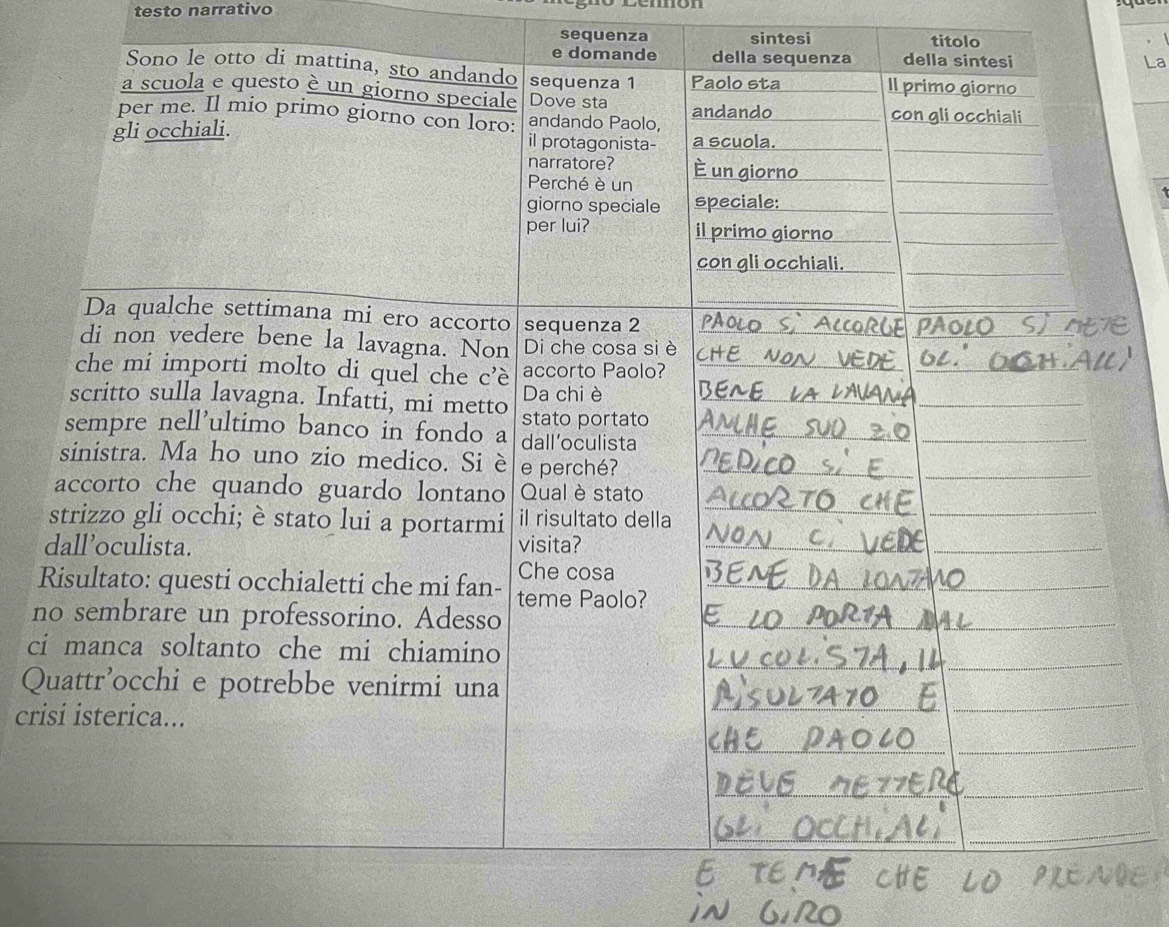 testo narrativo
sequenza
e domande
sintesi
della sequenza
titolo
della sintesi
La
Sono le otto di mattina, sto andando
a scuola e questo è un giorno speciale
per me. Il mio primo giorno con loro:
gli occhiali.
sequenza 1
Dove sta
andando Paolo,
il protagonista-
narratore?
Perché è un
giorno speciale
per lui?
Paolo sta
andando
a scuola.
È un giorno
speciale:
il primo giorno
con gli occhiali.
Il primo giorno
con gli occhiali
Da qualche settimana mi ero accorto
di non vedere bene la lavagna. Non
che mi importi molto di quel che c'è
scritto sulla lavagna. Infatti, mi metto
sempre nell'ultimo banco in fondo a
sinistra. Ma ho uno zio medico. Si è
accorto che quando guardo lontano
strizzo gli occhi; è stato lui a portarmi
dall'oculista.
Risultato: questi occhialetti che mi fan-
no sembrare un professorino. Adesso
ci manca soltanto che mi chiamino
Quattr'occhi e potrebbe venirmi una
crisi isterica...
sequenza 2
Di che cosa si è
accorto Paolo?
Da chi è
stato portato
dall'oculista
e perché?
Qual è stato
il risultato della
visita?
Che cosa
teme Paolo?
PAOLO Si ACCORGE
CHE NON VEDE
BENE LA LAVANIA
ANCHE SUO ZiO
MEDiCO Si E
ACCORTO CHE
NON Ci VEDE
BENE DA LONTANO
E LO PORTA DAL
LUCOLiSTA, IL
RiSULTATO E
CHE PAOLO
DEVE METTERE
GLi OCCHiALi
E TEME CHE LO PRENDE
iN GiRO
PAOLO Si METE
GLi OCCHiALi